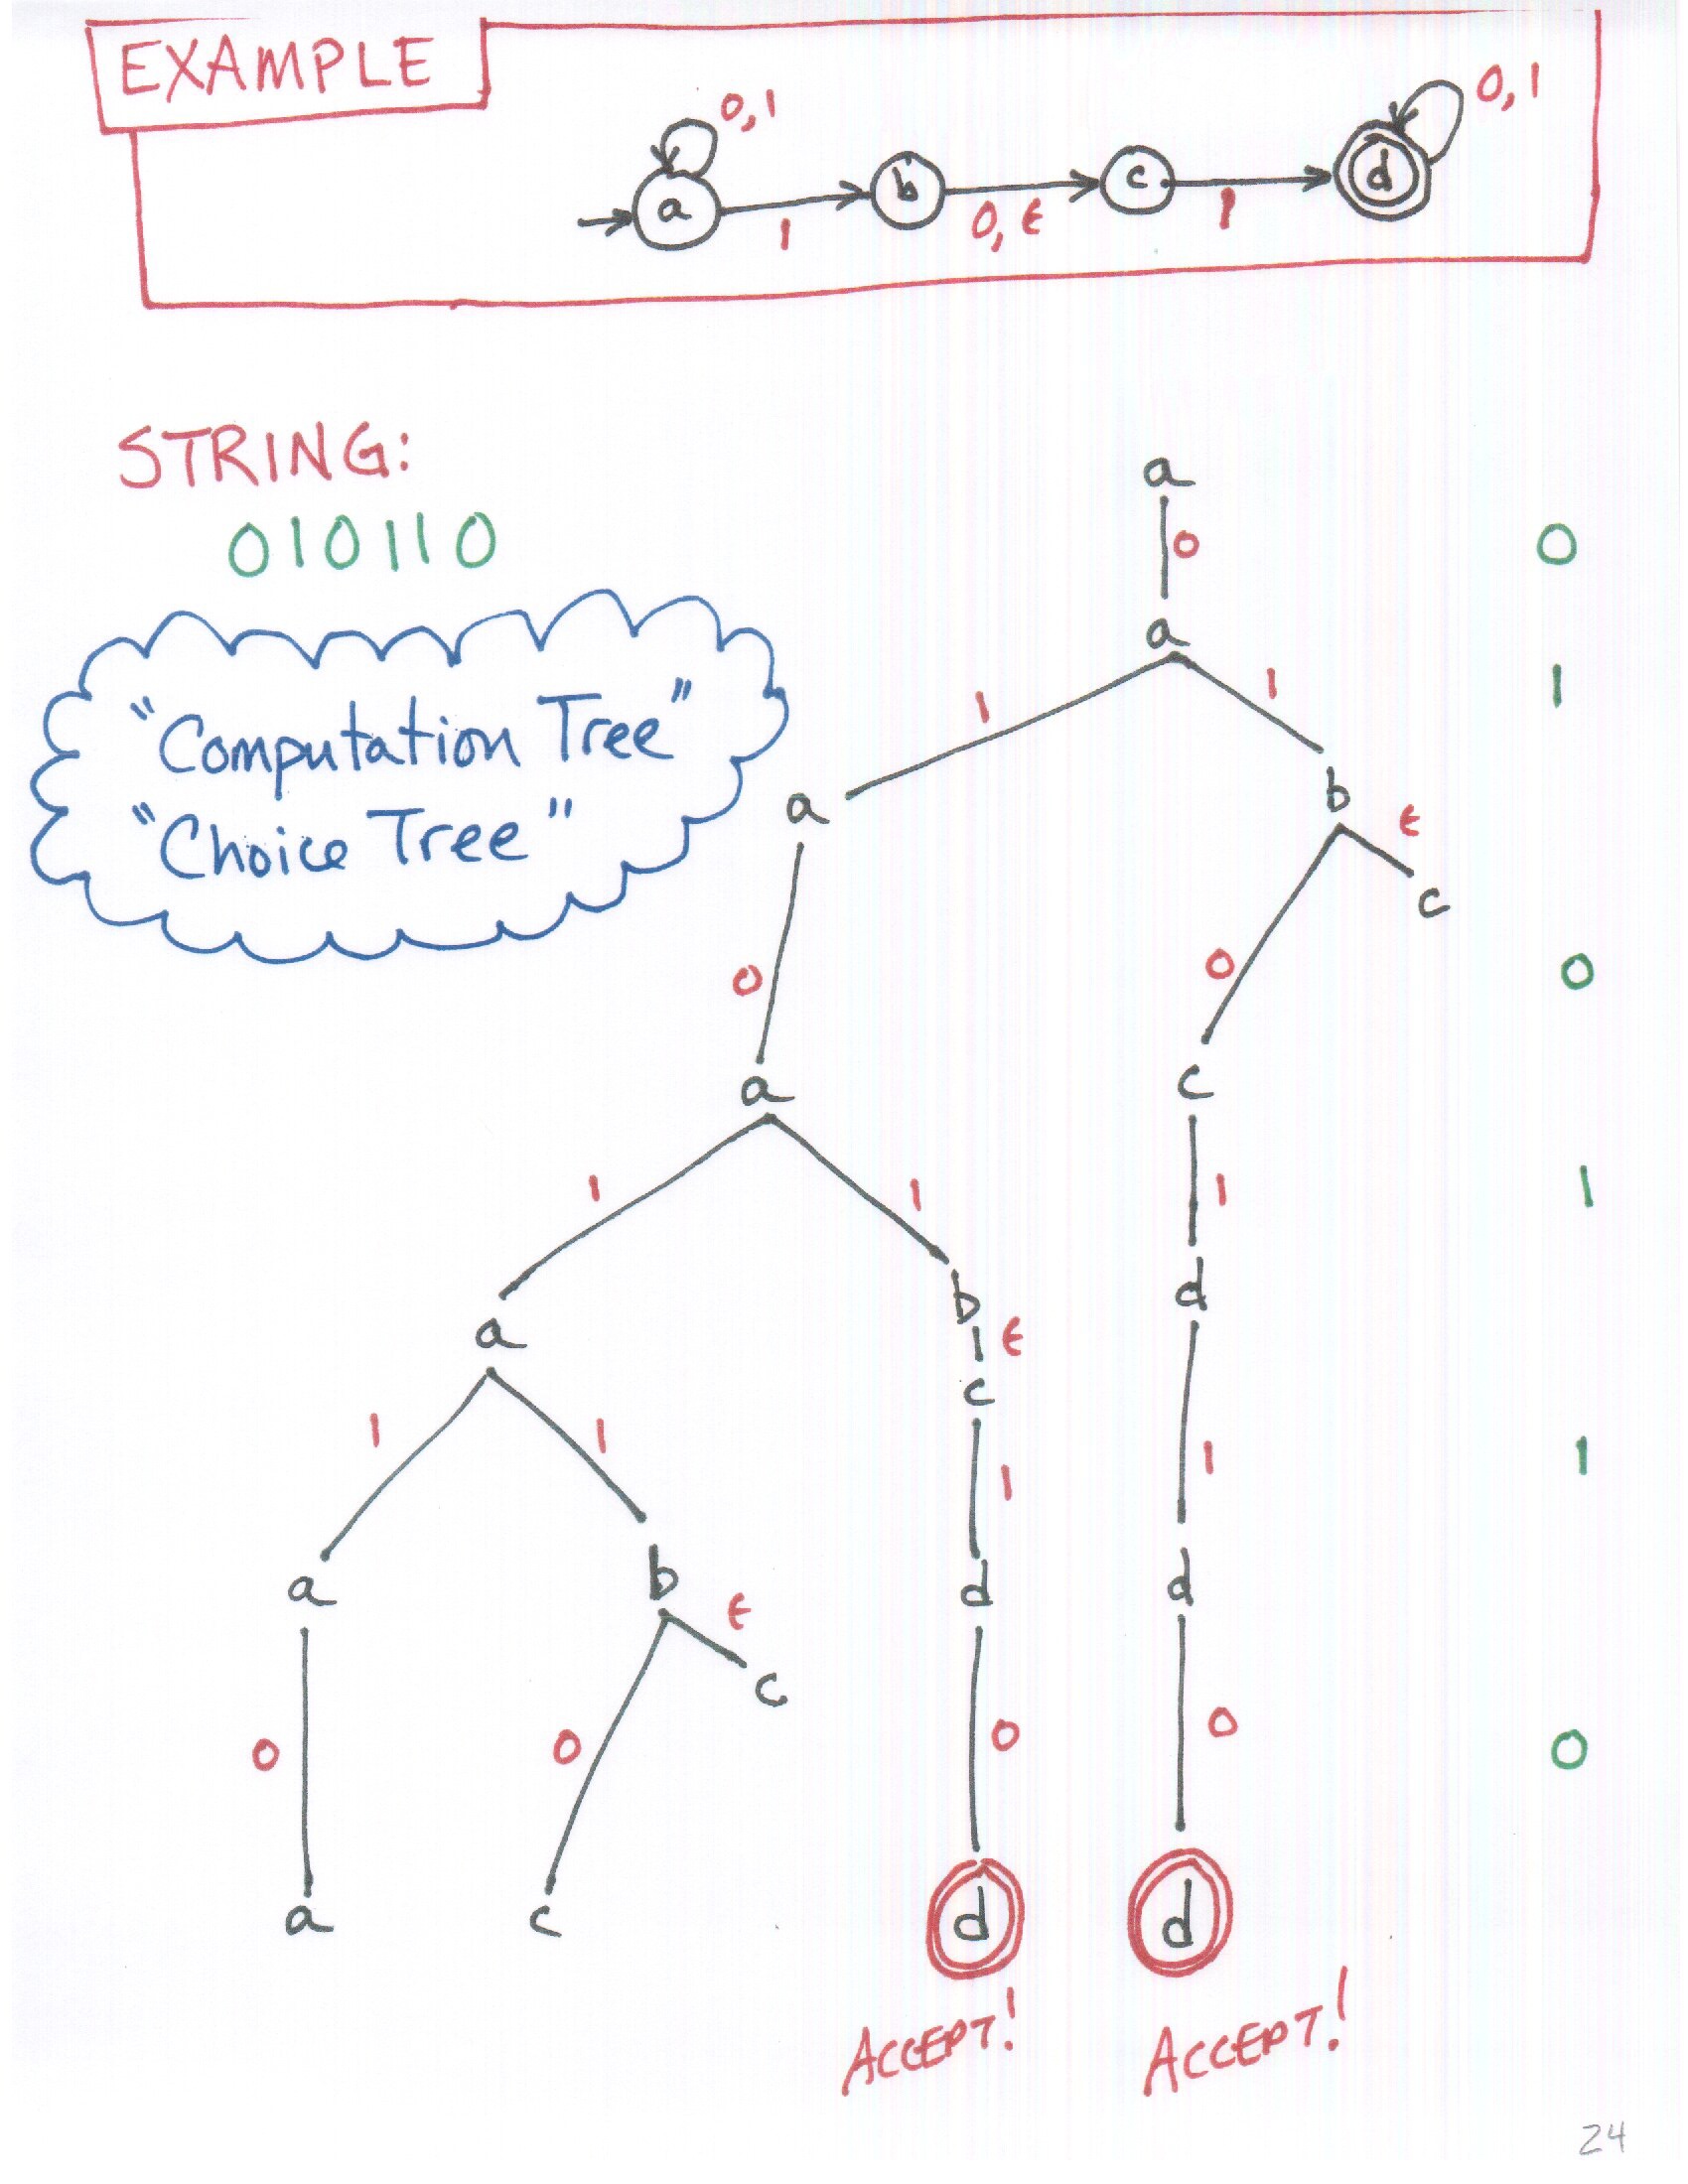 EXAMPLE
0,1
0,1
a
b
c
d
1
0, ε
1
STRING:
010110
"Computation Tree"
"Choice Tree"
a
0
0
a
1
1
1
a
b
ε
c
0
0
0
a
c
1
1
1
1
a
b
d
ε
c
1
1
1
1
1
a
b
d
d
ε
c
0
0
0
0
0
a
c
d
d
ACCEPT!
ACCEPT!
24